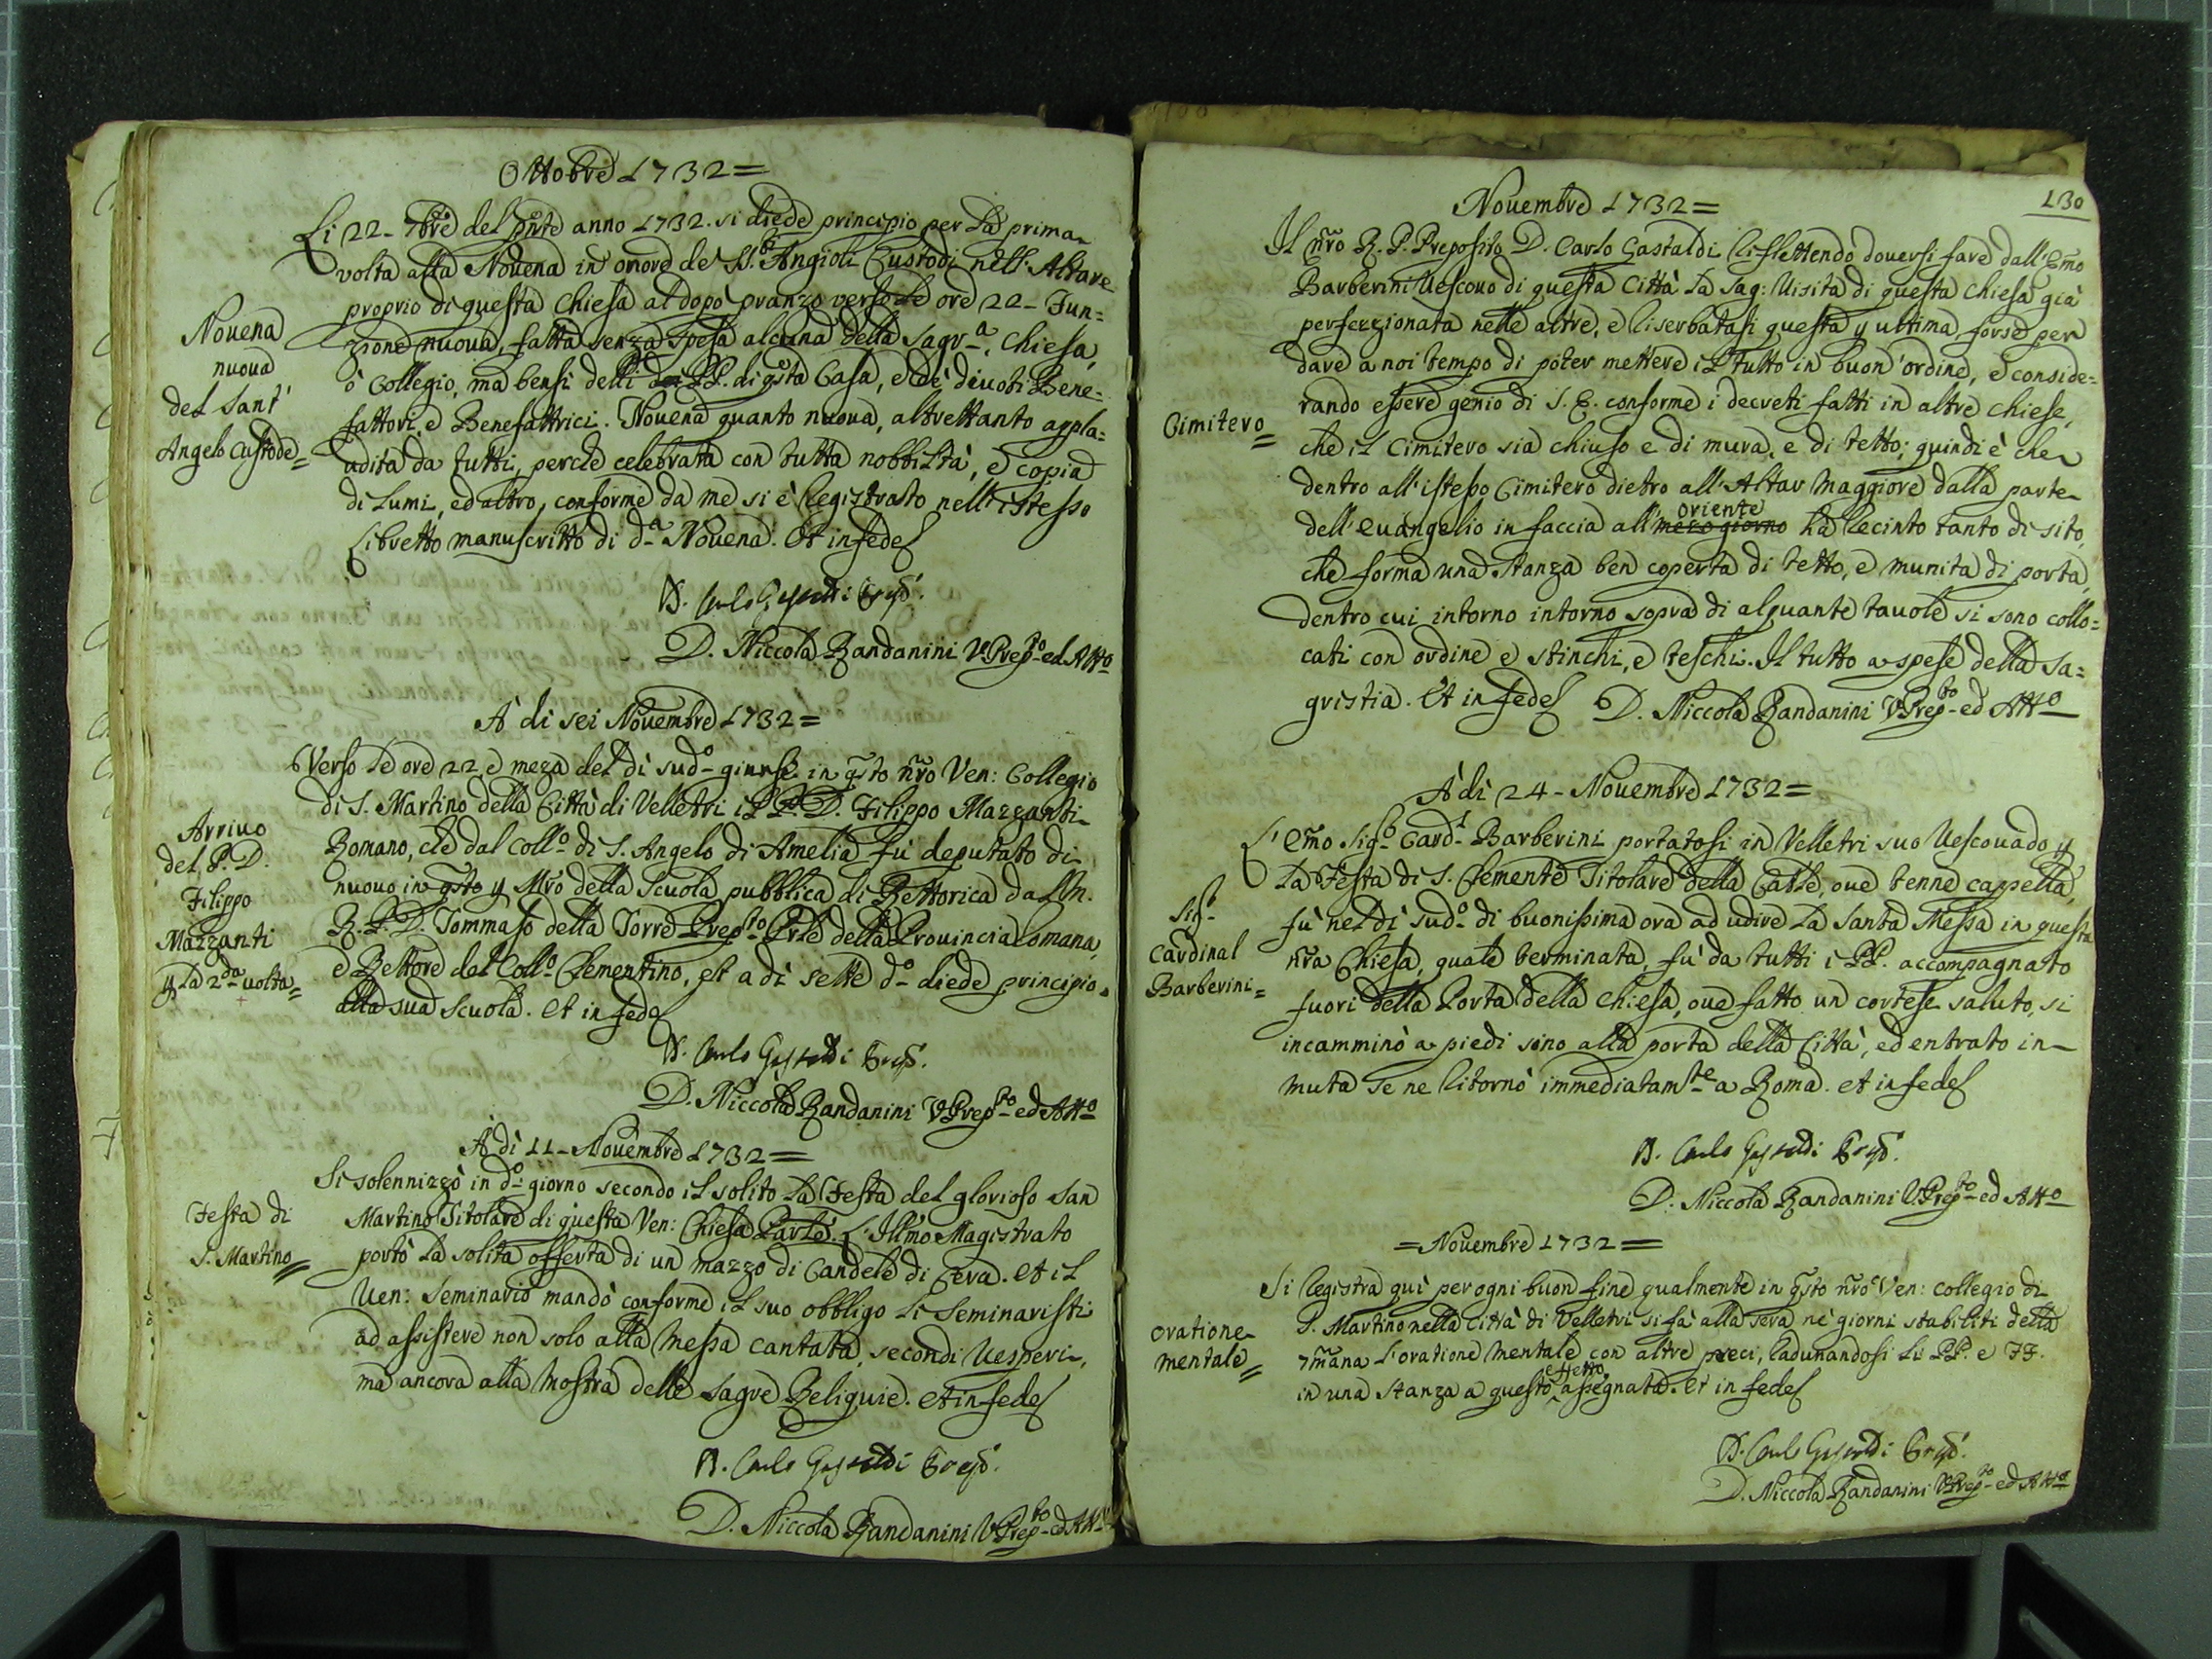 Ottobre 1732=
Li 22- 7bre del pnte anno 1732. si diede principio per la prima
volta alla Novena in onore de SS.ti Angioli Custodi nell'Altare
proprio di questa Chiesa al dopo pranzo verso le ore 22- Fun=
zione nuova, fatta senza spesa alcuna della Sagr.a, Chiesa,
ò Collegio, ma bensi delli PP. di qsta Casa, e de' divoti Bene=
fattori, e Benefattrici. Novena quanto nuova, altrettanto appla=
udita da tutti, perche celebrata con tutta nobbiltà, e copia
di Lumi, ed altro, conforme da me si è Registrato nell'istesso
Libretto manuscritto di d.a Novena. Et in fede
Novena
nuova
del Sant'
Angelo Custode=
D. Carlo Gastaldi Prep.o
D. Niccola Randanini V.Prep.to ed Att.o
A' di sei Novembre 1732=
Verso le ore 22 e meza del dì sud.o giunse in qsto nro Ven: Collegio
di S. Martino della Città di Velletri il P. D. Filippo Mazzanti
Romano, che dal Coll.o di S. Angelo di Amelia fù deputato di
nuovo in qsto p Mro della Scuola pubblica di Rettorica dal M.
R. P. D. Tommaso della Torre Prep.to Prle della Provincia Romana,
e Rettore del Coll.o Clementino, et a dì sette d.o diede principio
alla sua Scuola. et in fede
Arrivo
del P. D.
Filippo
Mazzanti
p la 2.da volta=
D. Carlo Gastaldi Prep.o
D. Niccola Randanini V.Prep.to ed Att.o
A' dì 11- Novembre 1732=
Si solennizzò in d.o giorno secondo il solito la Festa del glorioso San
Martino Titolare di questa Ven: Chiesa Parle. L'Illmo Magistrato
portò la solita offerta di un mazzo di Candele di Cera. et il
Ven: Seminario mandò conforme il suo obbligo li Seminaristi
ad assistere non solo alla Messa cantata, secondi Vesperi,
ma ancora alla Mostra delle Sagre Reliquie. et in fede
Festa di
S. Martino=
D. Carlo Gastaldi Prep.o
D. Niccola Randanini V.Prep.to ed Att.o
130
Novembre 1732=
Il nro R. P. Preposito D. Carlo Gastaldi riflettendo doversi fare dall'Emo
Barberini Vescovo di questa Città la Sag: Visita di questa Chiesa già
perfezzionata nelle altre, e riserbatasi questa p ultima, forse per
dare a noi tempo di poter mettere il tutto in buon'ordine, e conside=
rando essere genio di S. E. conforme i decreti fatti in altre Chiese,
che il Cimitero sia chiuso e di mura, e di tetto; quindi è che
dentro all'istesso Cimitero dietro all'Altar Maggiore dalla parte
dell'evangelio in faccia all'mezo giorno oriente ha recinto tanto di sito,
che forma una stanza ben coperta di tetto, e munita di porta,
dentro cui intorno intorno sopra di alquante tavole si sono collo=
cati con ordine e stinchi, e teschi. Il tutto a spese della Sa=
gristia. Et in fede D. Niccola Randanini V.Prep.to ed Att.o
Cimitero=
A' di 24- Novembre 1732=
L'emo Sig.r Card.l Barberini portatosi in Velletri suo Vescovado p
la Festa di S. Clemente Titolare della Catle, ove tenne cappella,
fù nel dì sud.o di buonissima ora ad udire la Santa Messa in questa
nra Chiesa, quale terminata, fù da tutti i PP. accompagnato
fuori della Porta della Chiesa, ove fatto un cortese saluto, si
incamminò a piedi sino alla porta della Città, ed entrato in
muta se ne ritornò immediatam.te a Roma. et in fede
Sig.r
Cardinal
Barberini=
D. Carlo Gastaldi Prep.o
D. Niccola Randanini V.Prep.to ed Att.o
=Novembre 1732=
Si registra qui per ogni buon fine qualmente in qsto nro Ven: Collegio di
S. Martino nella Città di Velletri si fà alla sera ne' giorni stabiliti della
7mana l'oratione mentale con altre preci, radunandosi li PP. e FF.
in una stanza a questo effetto assegnata. Et in fede
oratione
mentale=
D. Carlo Gastaldi Prep.o
D. Niccola Randanini V.Prep.to ed Att.o